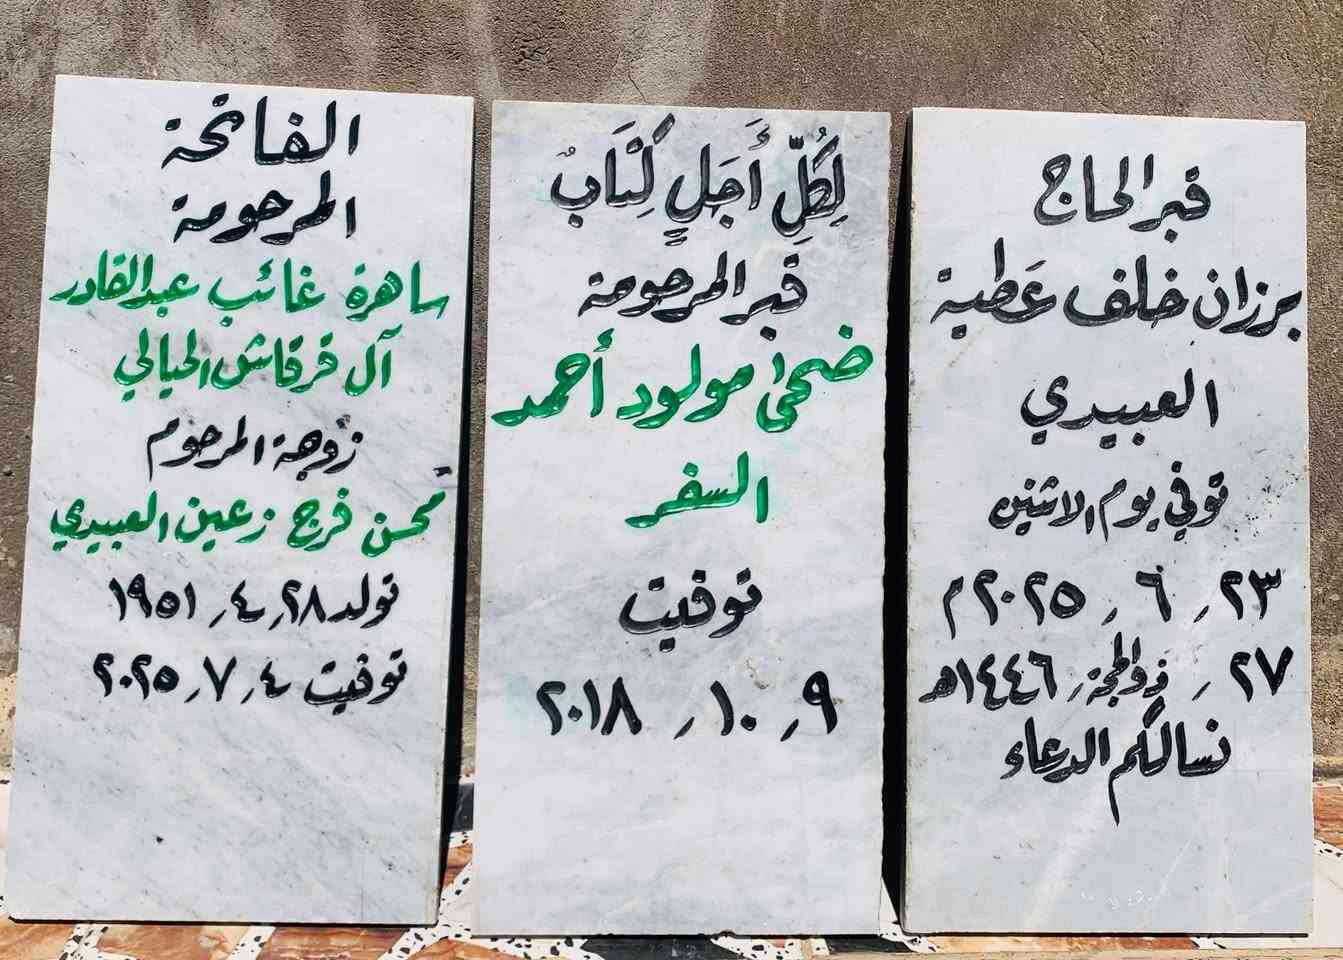 قبر الحاج
برزان خلف عَطية
العبيدي
توفي يوم الاثنين
٢٣ / ٦ / ٢٠٢٥ م
٢٧ / ذو الحجة / ١٤٤٦هـ
نسالكم الدعاء
لِكُلِّ أَجَلٍ كِتَابٌ
قبر المرحومة
ضحى مولود أحمد
السفر
توفيت
٩ / ١٠ / ٢٠١٨
الفاتحة
المرحومة
ساهرة غائب عبدالقادر
آل قرقاش الحيالي
زوجة المرحوم
محسن فرج زعين العبيدي
تولد ٢٨ / ٤ / ١٩٥١
توفيت ٤ / ٧ / ٢٠٢٥